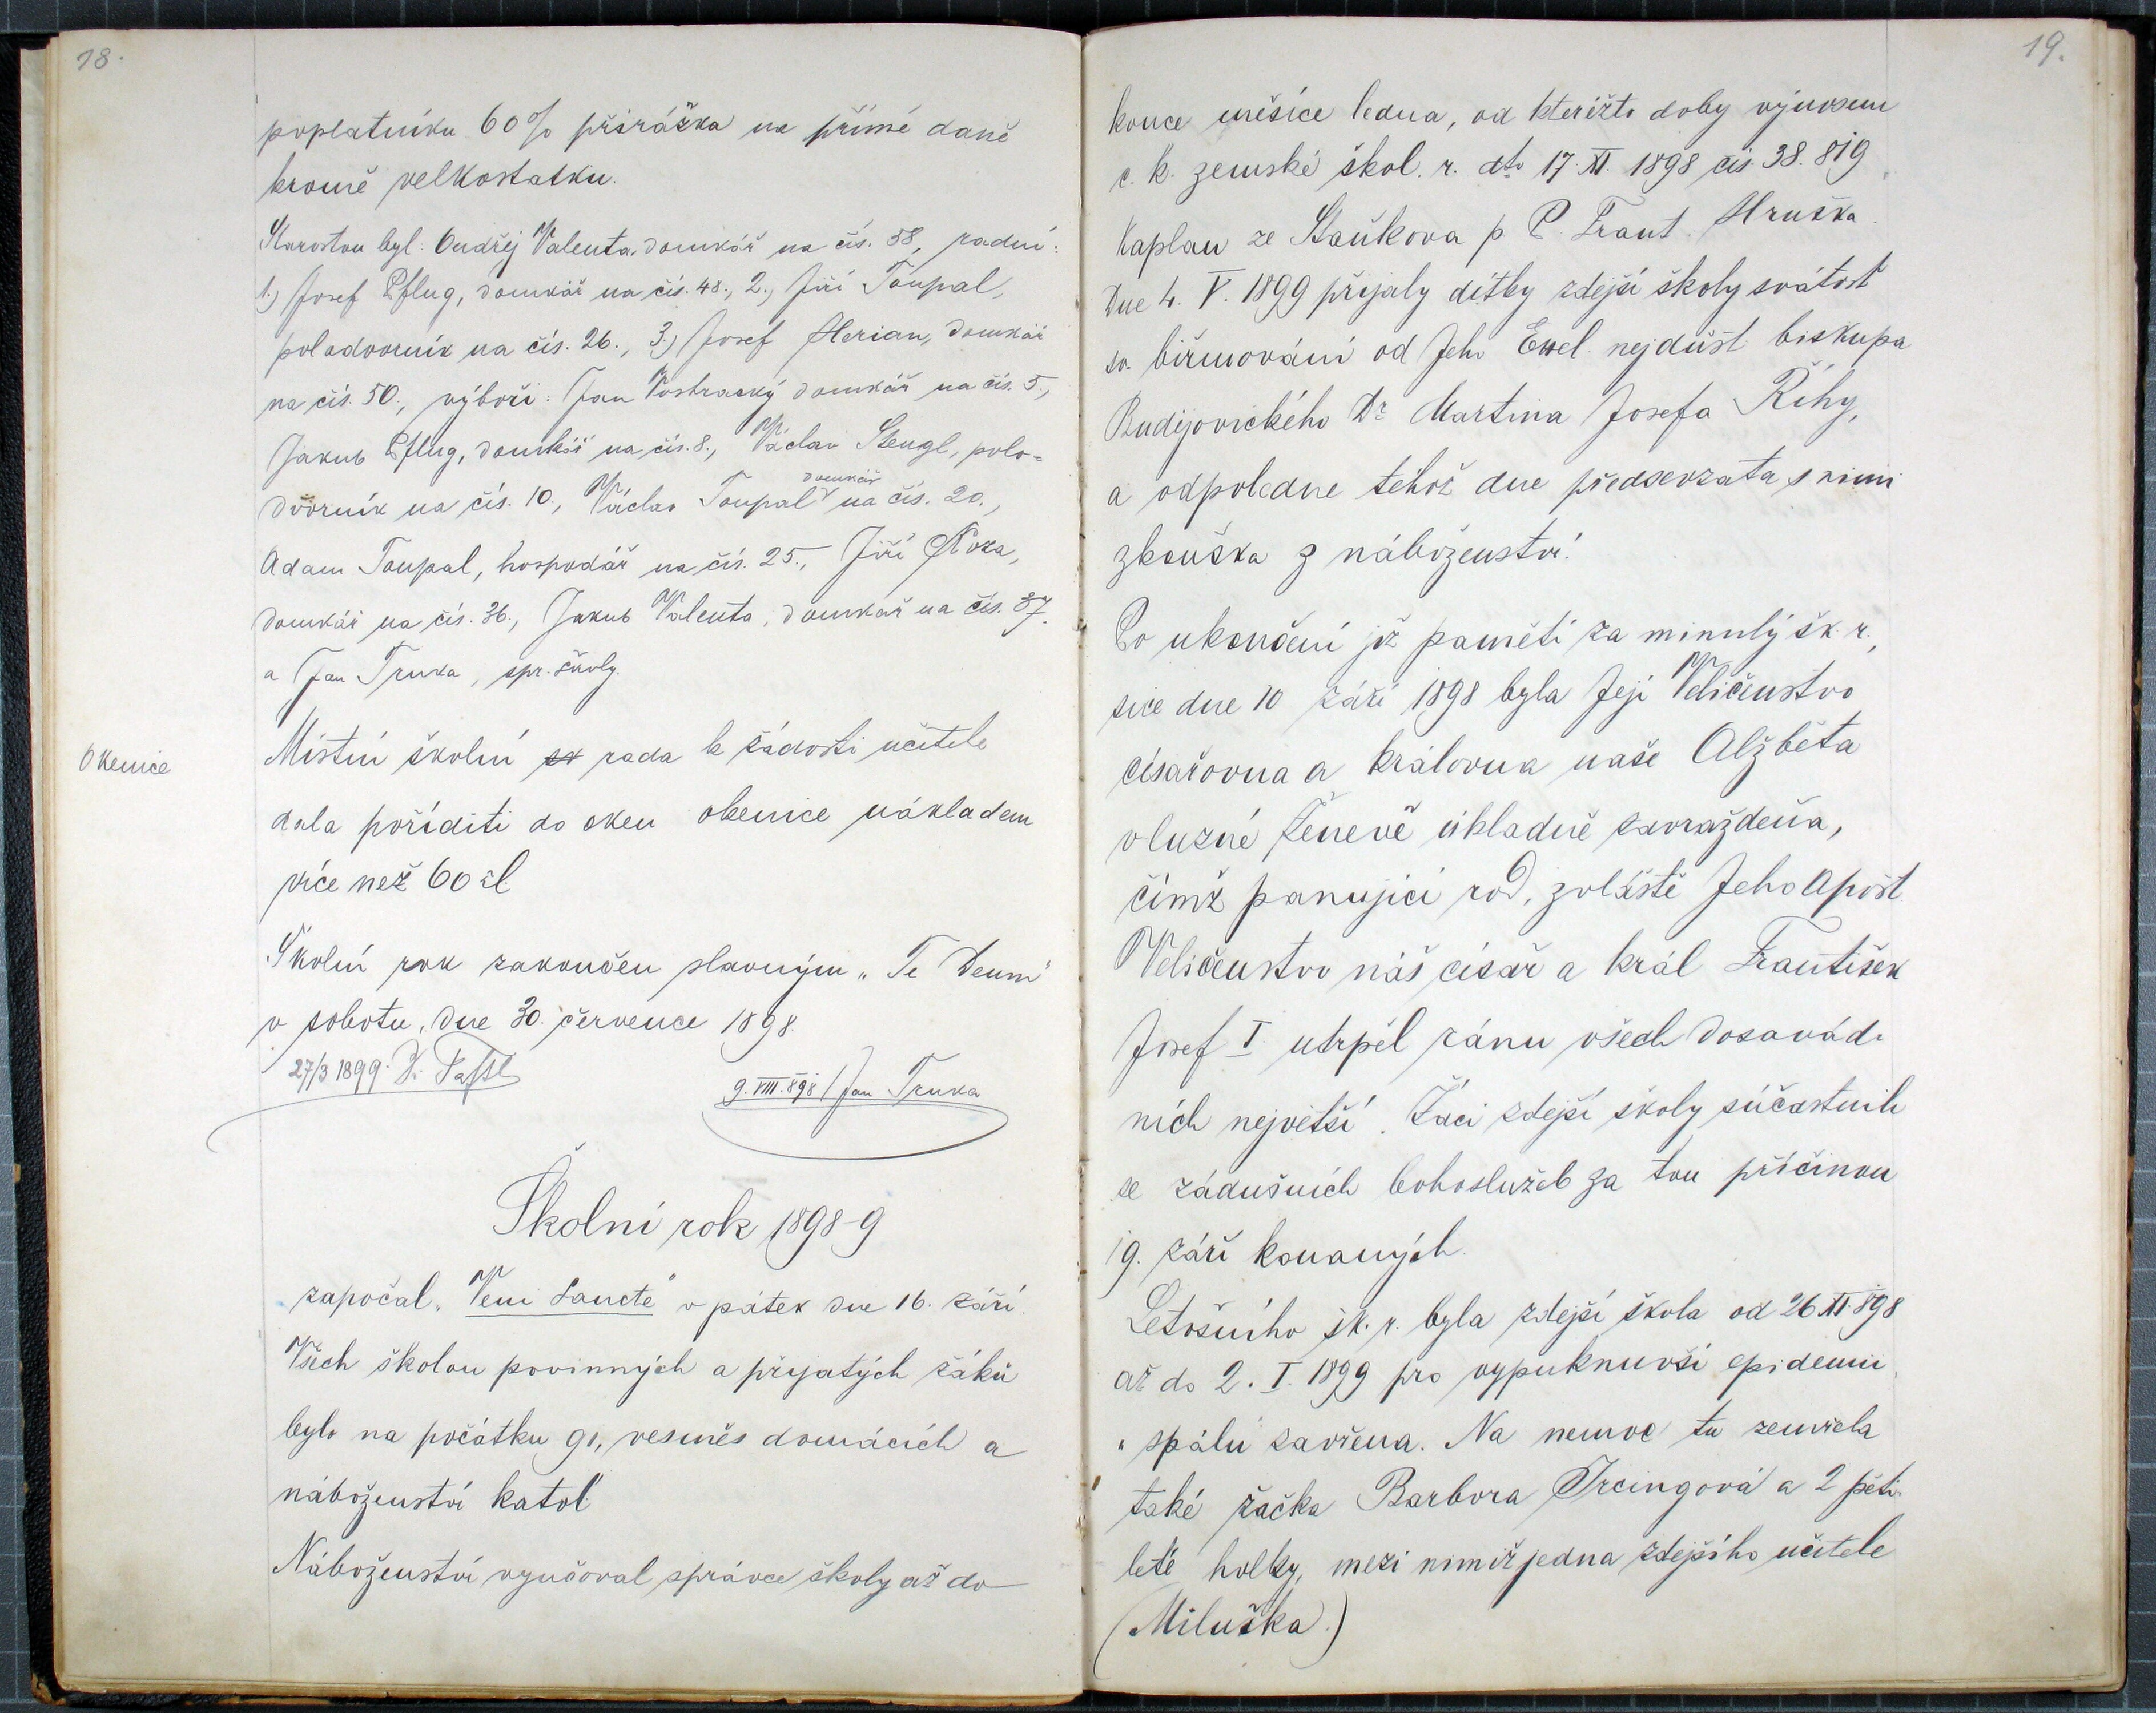 18.
poplatníku 60% přirážka na přímé daně
kromě velkostatku.
Starostou byl: Ondřej Valenta, domkář na čís. 58, radní:
1.) Josef Pflug, domkář na čís. 48., 2.) Jiří Toupal,
polodvorník na čís. 26., 3.) Josef Herian, domkář
na čís. 50., výboři: Jan Vostracký domkář na čís. 5.,
Jakub Pflug, domkář na čís. 8., Václav Stengl, polo=
dvorník na čís. 10., Václav Toupal domkář na čís. 20.,
Adam Toupal, hospodář na čís. 25., Jiří
domkář na čís. 36., Jakub Valenta, domkář na čís. 37.
a Jan Truka, spr. školy.
Okenice
Místní školní rada k žádosti učitele
dala poříditi do oken okenice nákladem
více než 60 zl
Školní rok zakončen slavným „Te Deum"
v sobotu, dne 30. července 1898.
27/3 1899.
9. VIII. 898 Jan Truka
Školní rok 1898-9
započal „Veni Sancte" v pátek dne 16. září.
Všech školou povinných a přijatých žáků
bylo na počátku 90, vesměs domácích a
náboženství katol.
Náboženství vyučoval správce školy až do
19.
konce měsíce ledna, od kterižto doby výnosem
c. k. zemské škol. r. dto 17. XI. 1898 čís. 38.819
Kaplan ze Staňkova p. P. Frant. Hruška.
Dne 4. V. 1899 přijaly dítky zdejší školy svátost
sv. biřmování od Jeho Excel. nejdůst. biskupa
Budějovického Dr Martina Josefa Říhy,
a odpoledne téhož dne předsevzata s nimi
zkouška z náboženství.
Po ukončení již paměti za minulý šk. r.,
sice dne 10 září 1898 byla Její Veličenstvo
císařovna a královna naše Alžběta
v luzné Ženevě úkladně zavražděna,
čímž panující rod, zvláště Jeho Apošt.
Veličenstvo náš císař a král František
Josef I. utrpěl ránu všech dosavád-
ních největší. Žáci zdejší školy súčastnili
se zádušních bohoslužeb za tou příčinou
19. září konaných.
Letošního šk. r. byla zdejší škola od 26. XI. 898
až do 2. I. 1899 pro vypuknuvší epidemii
spálu zavřena. Na nemoc tu zemřela
také žačka Barbora Ircingová a 2 pěti-
leté holky, mezi nimiž jedna zdejšího učitele
(Miluška.)